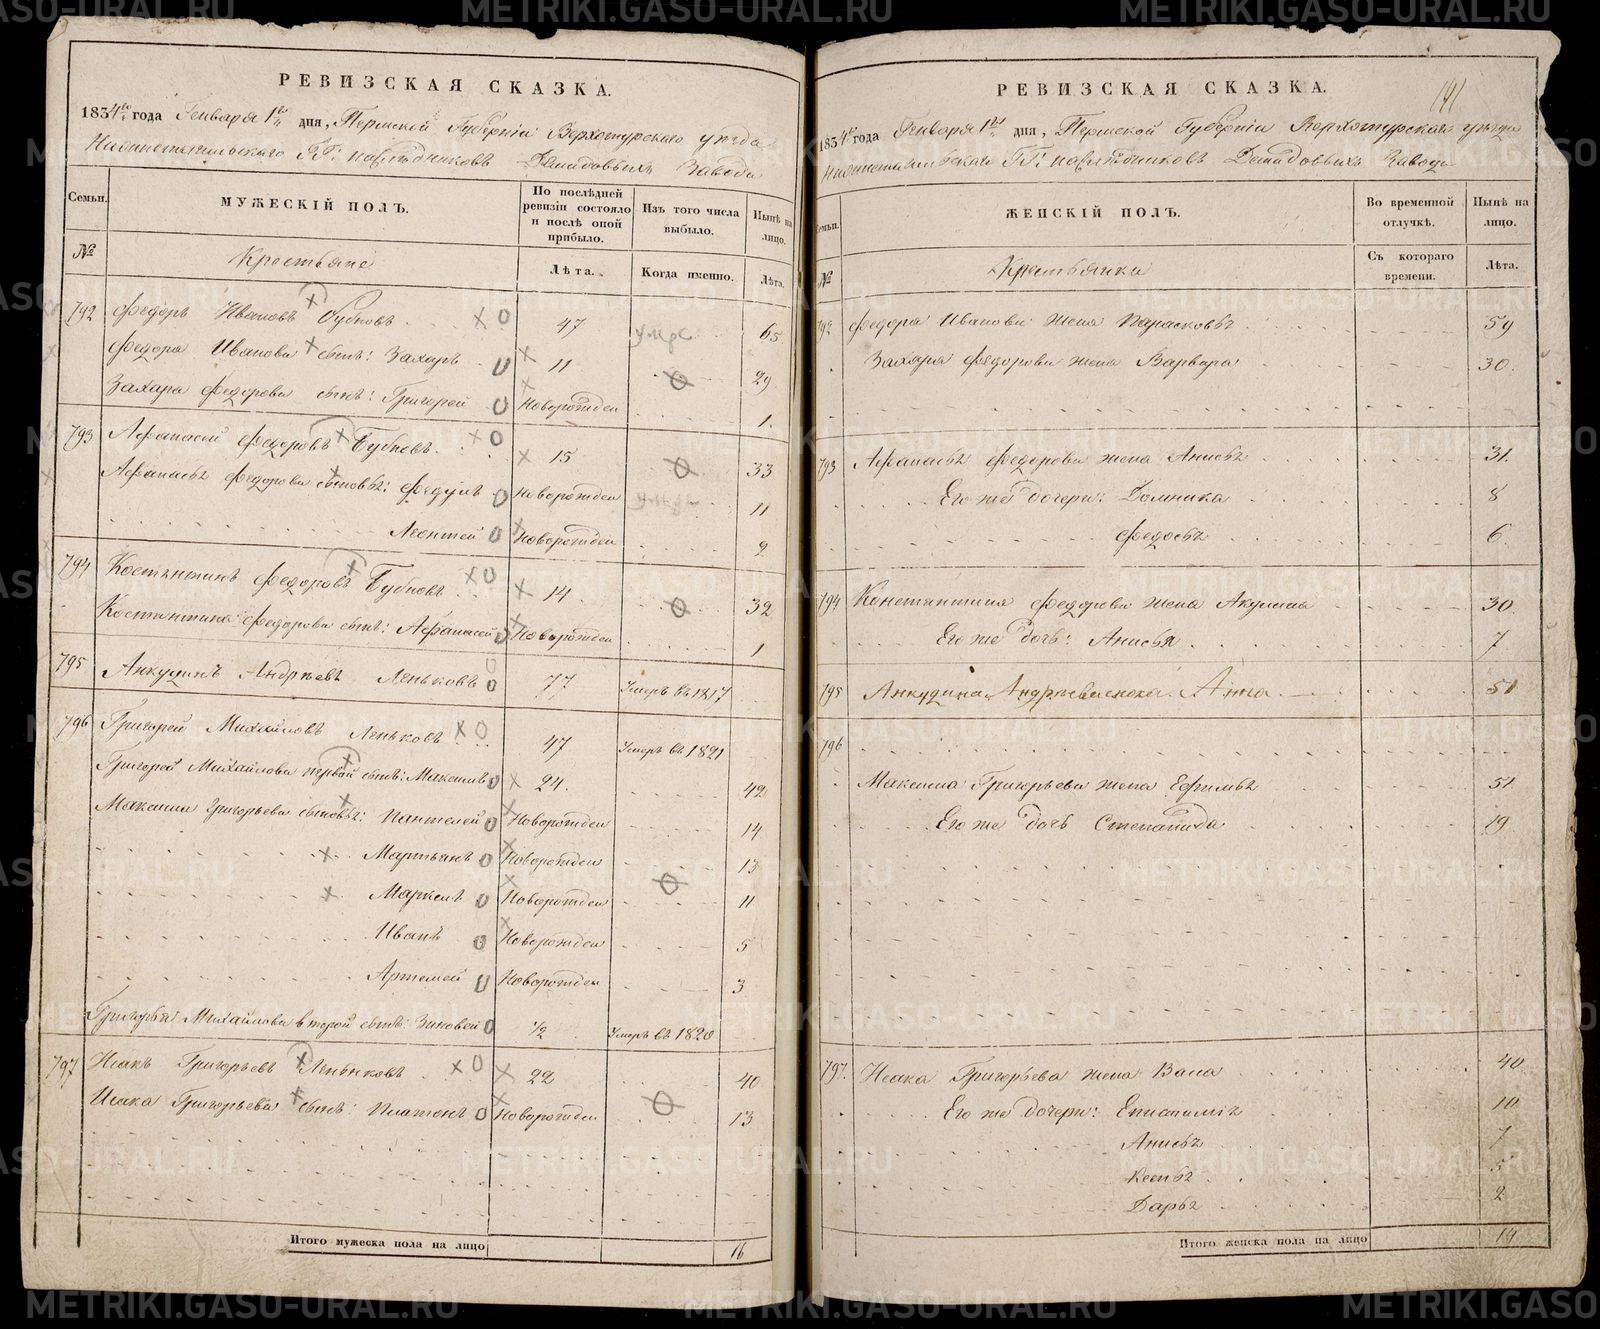 РЕВИЗСКАЯ СКАЗКА.
1834го года Генваря 1го дня, Пермской Губерніи Верхотурскаго уѣзда
Нижнетагильскаго ГГ: наслѣдниковъ Демидовыхъ Завода
Семьи.
МУЖЕСКІЙ ПОЛЪ.
По послѣдней ревизіи состояло и послѣ оной прибыло.
Изъ того числа выбыло.
Нынѣ на лицо.
№
Крестьяне
Лѣта.
Когда именно.
Лѣта.
792 Федоръ Ивановъ Бубновъ 47 65
Федора Иванова сынъ: Захаръ 11 29
Захара Федорова сынъ: Григорей Новорожден 1
793 Афанасей Федоровъ Бубновъ 15 33
Афанасья Федорова сыновья: Федулъ Новорожден 11
Леонтей Новорожден 2
794 Костянтинъ Федоровъ Бубновъ 14 32
Костянтина Федорова сынъ: Афанасей Новорожден 1
795 Анкудинъ Андреевъ Леньковъ 77 Умеръ въ 1817
796 Григорей Михайловъ Леньковъ 47 Умеръ въ 1821
Григорья Михайлова первой сынъ: Максимъ 24 42
Максима Григорьева сыновья: Пантелей Новорожден 14
Мартьянъ Новорожден 13
Маркелъ Новорожден 11
Иванъ Новорожден 5
Артемей Новорожден 3
Григорья Михайлова второй сынъ: Зиновей 1/2 Умеръ въ 1820
797 Исакъ Григорьевъ Леньковъ 22 40
Исака Григорьева сынъ: Платонъ Новорожден 13
Итого мужеска пола на лицо 16
РЕВИЗСКАЯ СКАЗКА.
141
1834го года Генваря 1го дня, Пермской Губерніи Верхотурскаго уѣзда
Нижнетагильскаго ГГ: наслѣдниковъ Демидовыхъ Завода
Семьи.
ЖЕНСКІЙ ПОЛЪ.
Во временной отлучкѣ.
Нынѣ на лицо.
№
Крестьянки
Съ котораго времени.
Лѣта.
792 Федора Иванова жена Парасковья 59
Захара Федорова жена Варвара 30
793 Афанасья Федорова жена Анисья 31
Его же дочери: Домника 8
Федосья 6
794 Констянтина Федорова жена Акулина 30
Его же дочь: Анисья 7
795 Анкудина Андреева Анна 51
796
Максима Григорьева жена Ефимья 51
Его же дочь Степанида 19
797 Исака Григорьева жена Васса 40
Его же дочери: Епистимія 10
Анисья 7
Ксенья 5
Дарья 2
Итого женска пола на лицо 14
METRIKI.GASO-URAL.RU